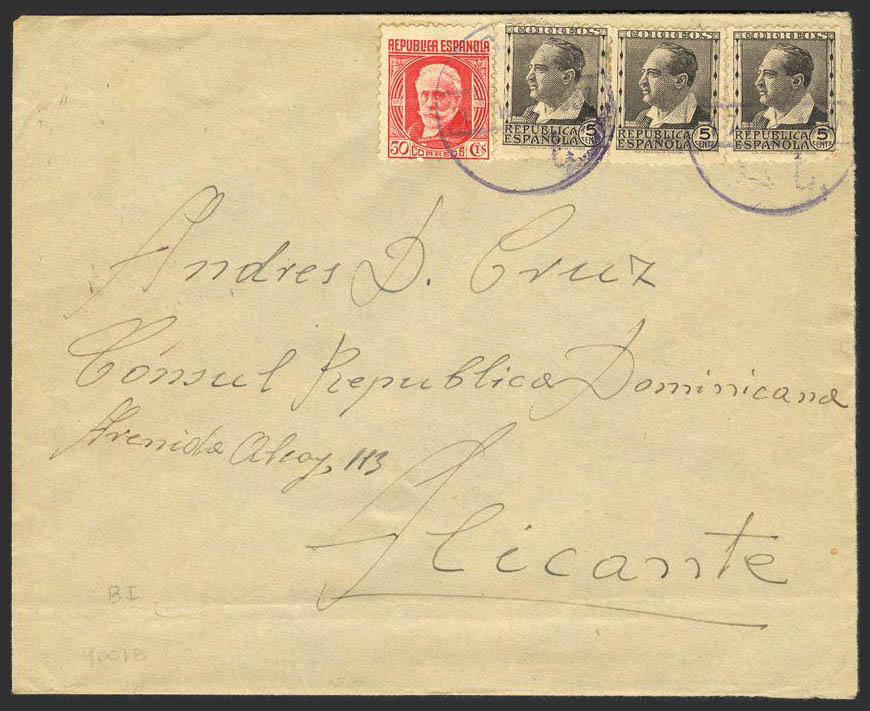 REPUBLICA ESPAÑOLA
30 CTS
CORREOS
CORREOS
REPUBLICA
ESPAÑOLA
5
CENTS
CORREOS
REPUBLICA
ESPAÑOLA
5
CENTS
CORREOS
REPUBLICA
ESPAÑOLA
5
CENTS
Andres D. Cruz
Cónsul Republica Dominicana
Avenida Alcoy, 113
Alicante
BI